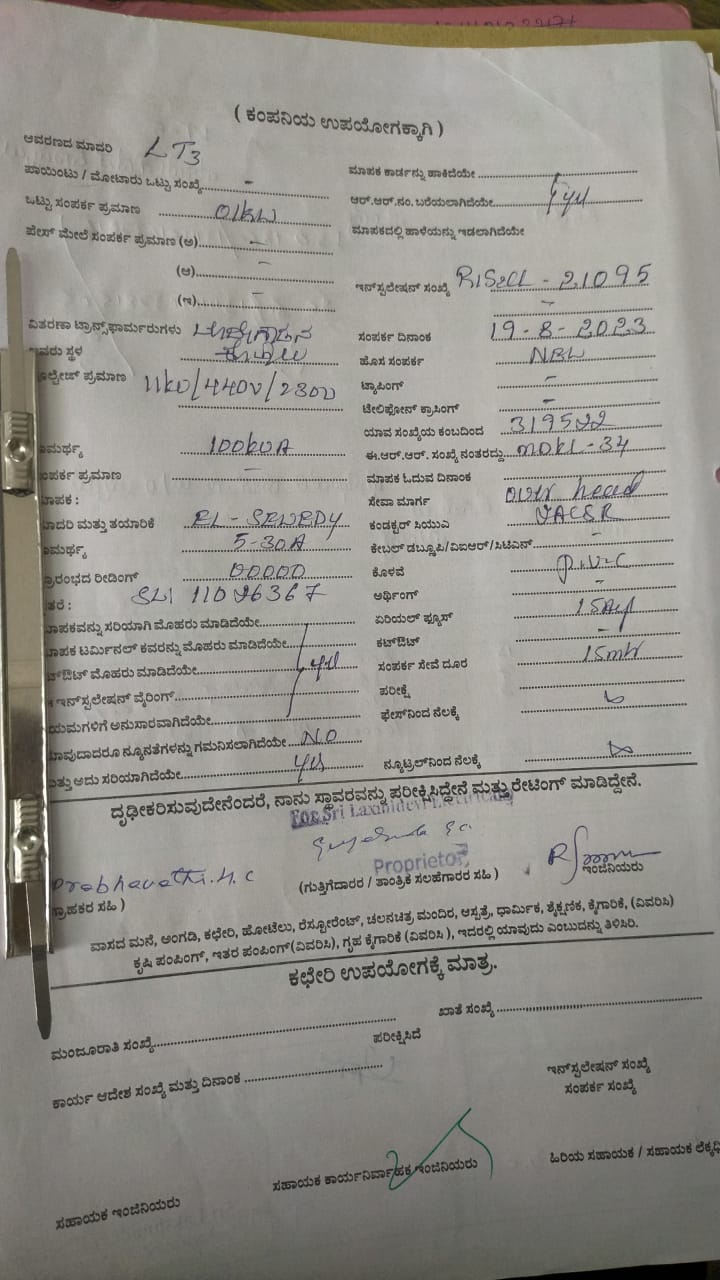 ( ಕಂಪನಿಯ ಉಪಯೋಗಕ್ಕಾಗಿ )
ಆವರಣದ ಮಾದರಿ LT3
ಪಾಯಿಂಟು / ಮೋಟಾರು ಒಟ್ಟು ಸಂಖ್ಯೆ - ಮಾಪಕ ಕಾರ್ಡನ್ನು ಹಾಕಿದೆಯೇ
ಒಟ್ಟು ಸಂಪರ್ಕ ಪ್ರಮಾಣ 01KW ಆರ್.ಆರ್.ನಂ. ಬರೆಯಲಾಗಿದೆಯೇ yes
ಫೇಸ್ ಮೇಲೆ ಸಂಪರ್ಕ ಪ್ರಮಾಣ (ಅ) - ಮಾಪಕದಲ್ಲಿ ಹಾಳೆಯನ್ನು ಇಡಲಾಗಿದೆಯೇ
(ಆ) -
(ಇ) - ಇನ್‌ಸ್ಟಲೇಷನ್ ಸಂಖ್ಯೆ - 21095
-
ವಿತರಣಾ ಟ್ರಾನ್ಸ್‌ಫಾರ್ಮರುಗಳು ಸಂಪರ್ಕ ದಿನಾಂಕ 19-8-2023
ಸ್ಥಳ ಹೊಸ ಸಂಪರ್ಕ NEW
ಪ್ರಮಾಣ 11KV/440V/230V ಟ್ಯಾಪಿಂಗ್ -
ಟೆಲಿಫೋನ್ ಕ್ರಾಸಿಂಗ್ -
100KVA ಯಾವ ಸಂಖ್ಯೆಯ ಕಂಬದಿಂದ 319522
ಸಂಪರ್ಕ ಪ್ರಮಾಣ - ಈ.ಆರ್.ಆರ್. ಸಂಖ್ಯೆ ನಂತರದ್ದು MDKL-34
ಮಾಪಕ : ಮಾಪಕ ಓದುವ ದಿನಾಂಕ -
ಮಾದರಿ ಮತ್ತು ತಯಾರಿಕೆ ಸೇವಾ ಮಾರ್ಗ over head
5-30A ಕಂಡಕ್ಟರ್ ಸಿಯುಎ
ಪ್ರಾರಂಭದ ರೀಡಿಂಗ್ 00000 ಕೇಬಲ್ ಡಬ್ಲೂಪಿ/ವಿಐಆರ್/ಸಿಟಿಎಸ್ -
ಇತರೆ : 11026367 ಕೊಳವೆ P.V.C
ಮಾಪಕವನ್ನು ಸರಿಯಾಗಿ ಮೊಹರು ಮಾಡಿದೆಯೇ ಅರ್ಥಿಂಗ್ -
ಮಾಪಕ ಟರ್ಮಿನಲ್ ಕವರನ್ನು ಮೊಹರು ಮಾಡಿದೆಯೇ ಏರಿಯಲ್ ಫ್ಯೂಸ್
ಕಟ್‌ಔಟ್ ಮೊಹರು ಮಾಡಿದೆಯೇ yes ಕಟ್‌ಔಟ್ -
ಇನ್‌ಸ್ಟಲೇಷನ್ ವೈರಿಂಗ್ ಸಂಪರ್ಕ ಸೇವೆ ದೂರ 15mtr
ನಿಯಮಗಳಿಗೆ ಅನುಸಾರವಾಗಿದೆಯೇ ಪರೀಕ್ಷೆ
ಯಾವುದಾದರೂ ನ್ಯೂನತೆಗಳನ್ನು ಗಮನಿಸಲಾಗಿದೆಯೇ NO ಫೇಸ್‌ನಿಂದ ನೆಲಕ್ಕೆ
ಮತ್ತು ಅದು ಸರಿಯಾಗಿದೆಯೇ yes ನ್ಯೂಟ್ರಲ್‌ನಿಂದ ನೆಲಕ್ಕೆ
ದೃಢೀಕರಿಸುವುದೇನೆಂದರೆ, ನಾನು ಸ್ಥಾವರವನ್ನು ಪರೀಕ್ಷಿಸಿದ್ದೇನೆ ಮತ್ತು ರೇಟಿಂಗ್ ಮಾಡಿದ್ದೇನೆ.
For Sri Laxmidevi Electricals
Proprietor
Prabhavathi.H.C (ಗುತ್ತಿಗೆದಾರರ / ತಾಂತ್ರಿಕ ಸಲಹೆಗಾರರ ಸಹಿ ) ಇಂಜಿನಿಯರು
ಗ್ರಾಹಕರ ಸಹಿ )
ವಾಸದ ಮನೆ, ಅಂಗಡಿ, ಕಛೇರಿ, ಹೋಟೆಲು, ರೆಸ್ಟೋರೆಂಟ್, ಚಲನಚಿತ್ರ ಮಂದಿರ, ಆಸ್ಪತ್ರೆ, ಧಾರ್ಮಿಕ, ಶೈಕ್ಷಣಿಕ, ಕೈಗಾರಿಕೆ, (ವಿವರಿಸಿ)
ಕೃಷಿ ಪಂಪಿಂಗ್, ಇತರ ಪಂಪಿಂಗ್(ವಿವರಿಸಿ), ಗೃಹ ಕೈಗಾರಿಕೆ (ವಿವರಿಸಿ ), ಇದರಲ್ಲಿ ಯಾವುದು ಎಂಬುದನ್ನು ತಿಳಿಸಿರಿ.
ಕಛೇರಿ ಉಪಯೋಗಕ್ಕೆ ಮಾತ್ರ.
ಮಂಜೂರಾತಿ ಸಂಖ್ಯೆ ಖಾತೆ ಸಂಖ್ಯೆ
ಪರೀಕ್ಷಿಸಿದೆ
ಕಾರ್ಯ ಆದೇಶ ಸಂಖ್ಯೆ ಮತ್ತು ದಿನಾಂಕ ಇನ್‌ಸ್ಟಲೇಷನ್ ಸಂಖ್ಯೆ
ಸಂಪರ್ಕ ಸಂಖ್ಯೆ
ಸಹಾಯಕ ಇಂಜಿನಿಯರು ಸಹಾಯಕ ಕಾರ್ಯನಿರ್ವಾಹಕ ಇಂಜಿನಿಯರು ಹಿರಿಯ ಸಹಾಯಕ / ಸಹಾಯಕ